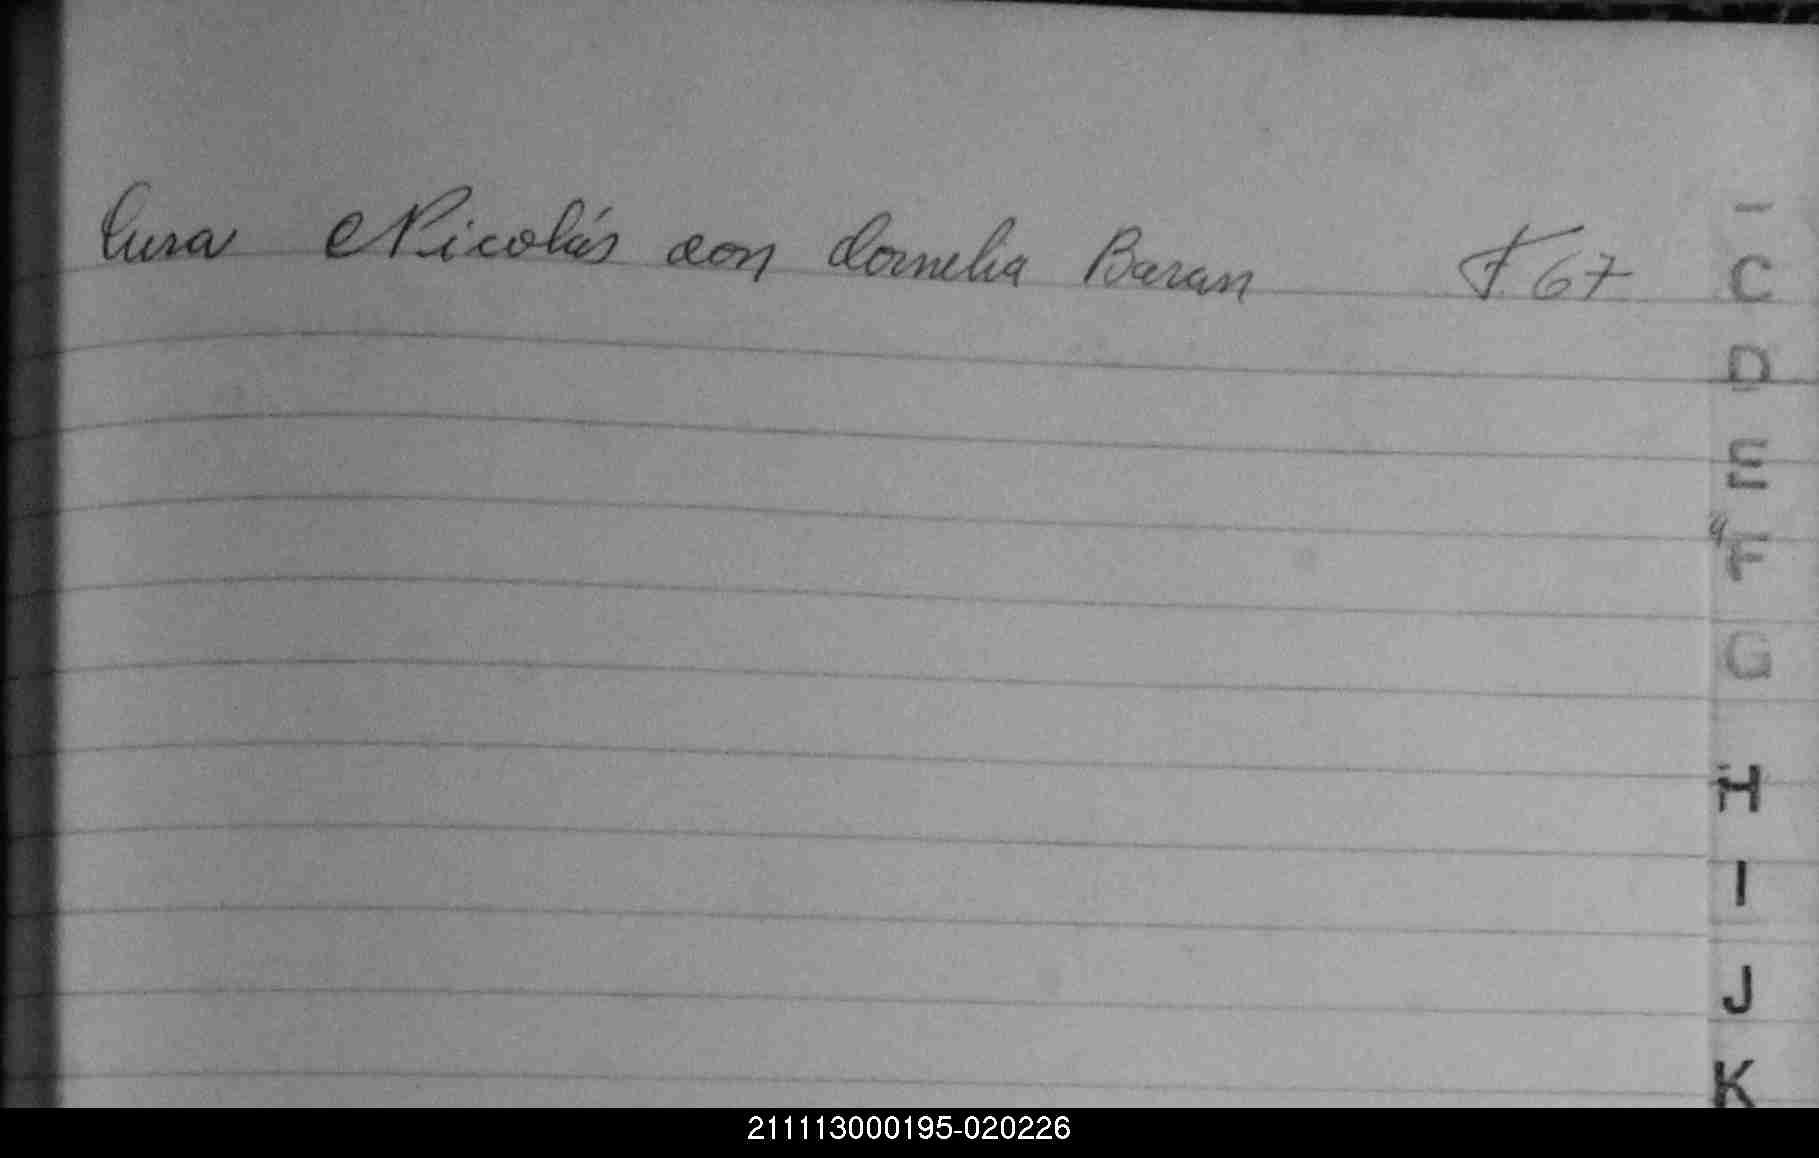 Cura Nicolás con Cornelia Baran F 67
C
D
E
F
G
H
I
J
K
211113000195-020226